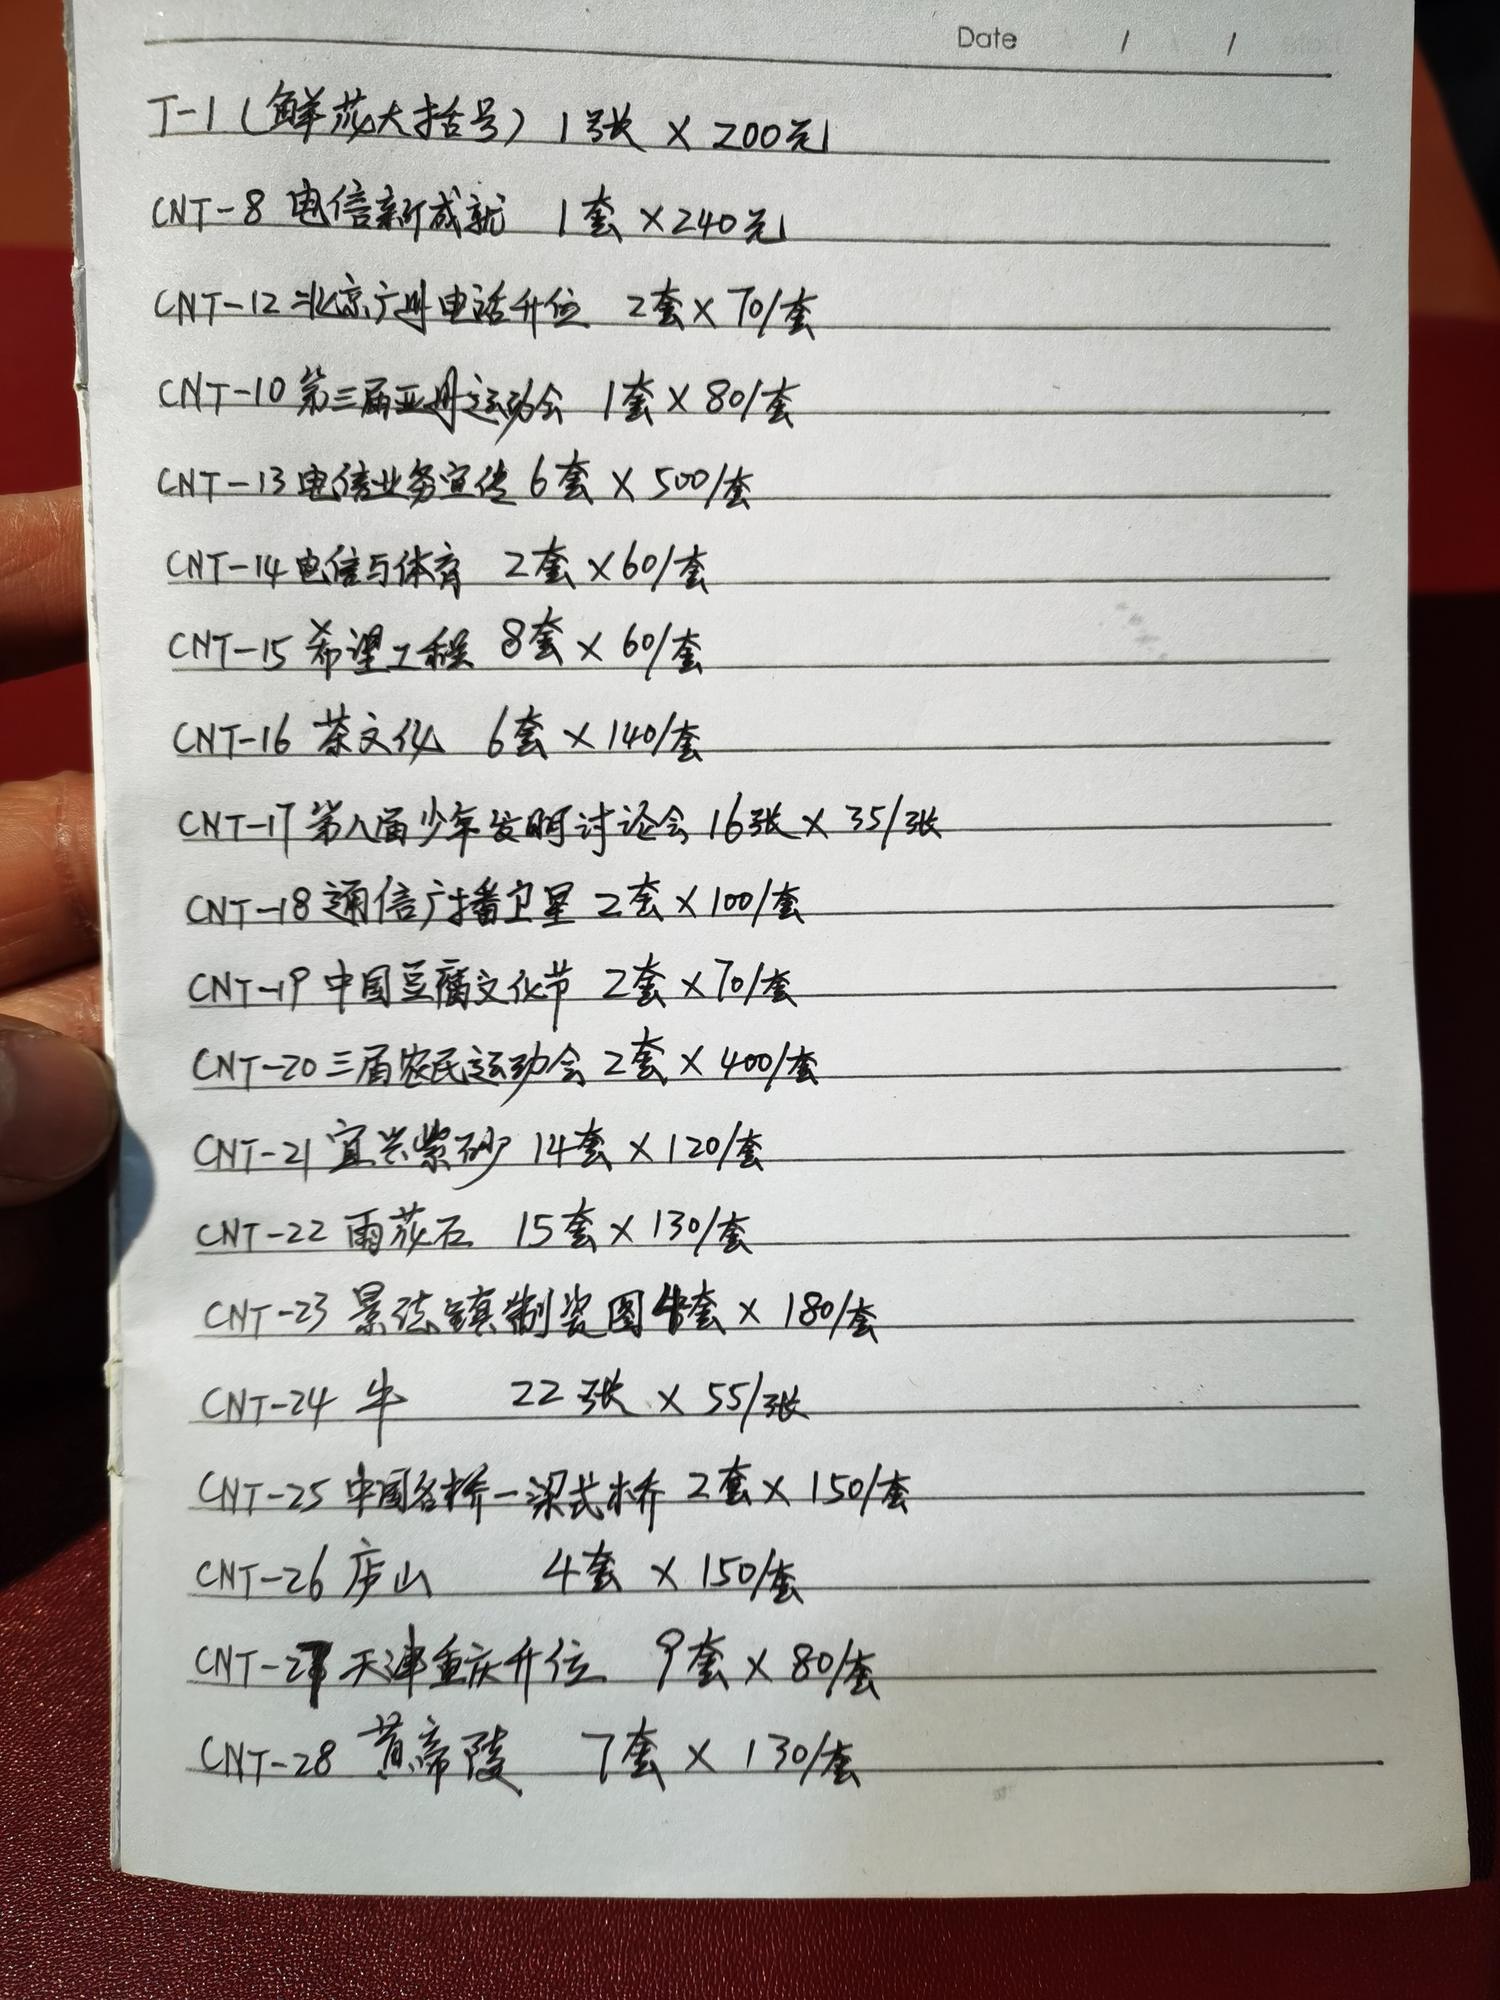 Date / /
T-1(鲜花大括号) 1张 × 200元
CNT-8 电信新成就 1套 ×240元
CNT-12 北京广州电话升位 2套×70/套
CNT-10 第三届亚州运动会 1套×80/套
CNT-13 电信业务宣传 6套×500/套
CNT-14 电信与体育 2套×60/套
CNT-15 希望工程 8套×60/套
CNT-16 茶文化 6套×140/套
CNT-17 第八届少年发明讨论会 16张×35/张
CNT-18 通信广播卫星 2套×100/套
CNT-19 中国豆腐文化节 2套×70/套
CNT-20 三届农民运动会 2套×400/套
CNT-21 宜兴紫砂 14套×120/套
CNT-22 雨花石 15套×130/套
CNT-23 景德镇制瓷图 4套×180/套
CNT-24 牛 22张×55/张
CNT-25 中国名桥-梁式桥 2套×150/套
CNT-26 庐山 4套×150/套
CNT-27 天津重庆升位 9套×80/套
CNT-28 黄帝陵 7套×130/套